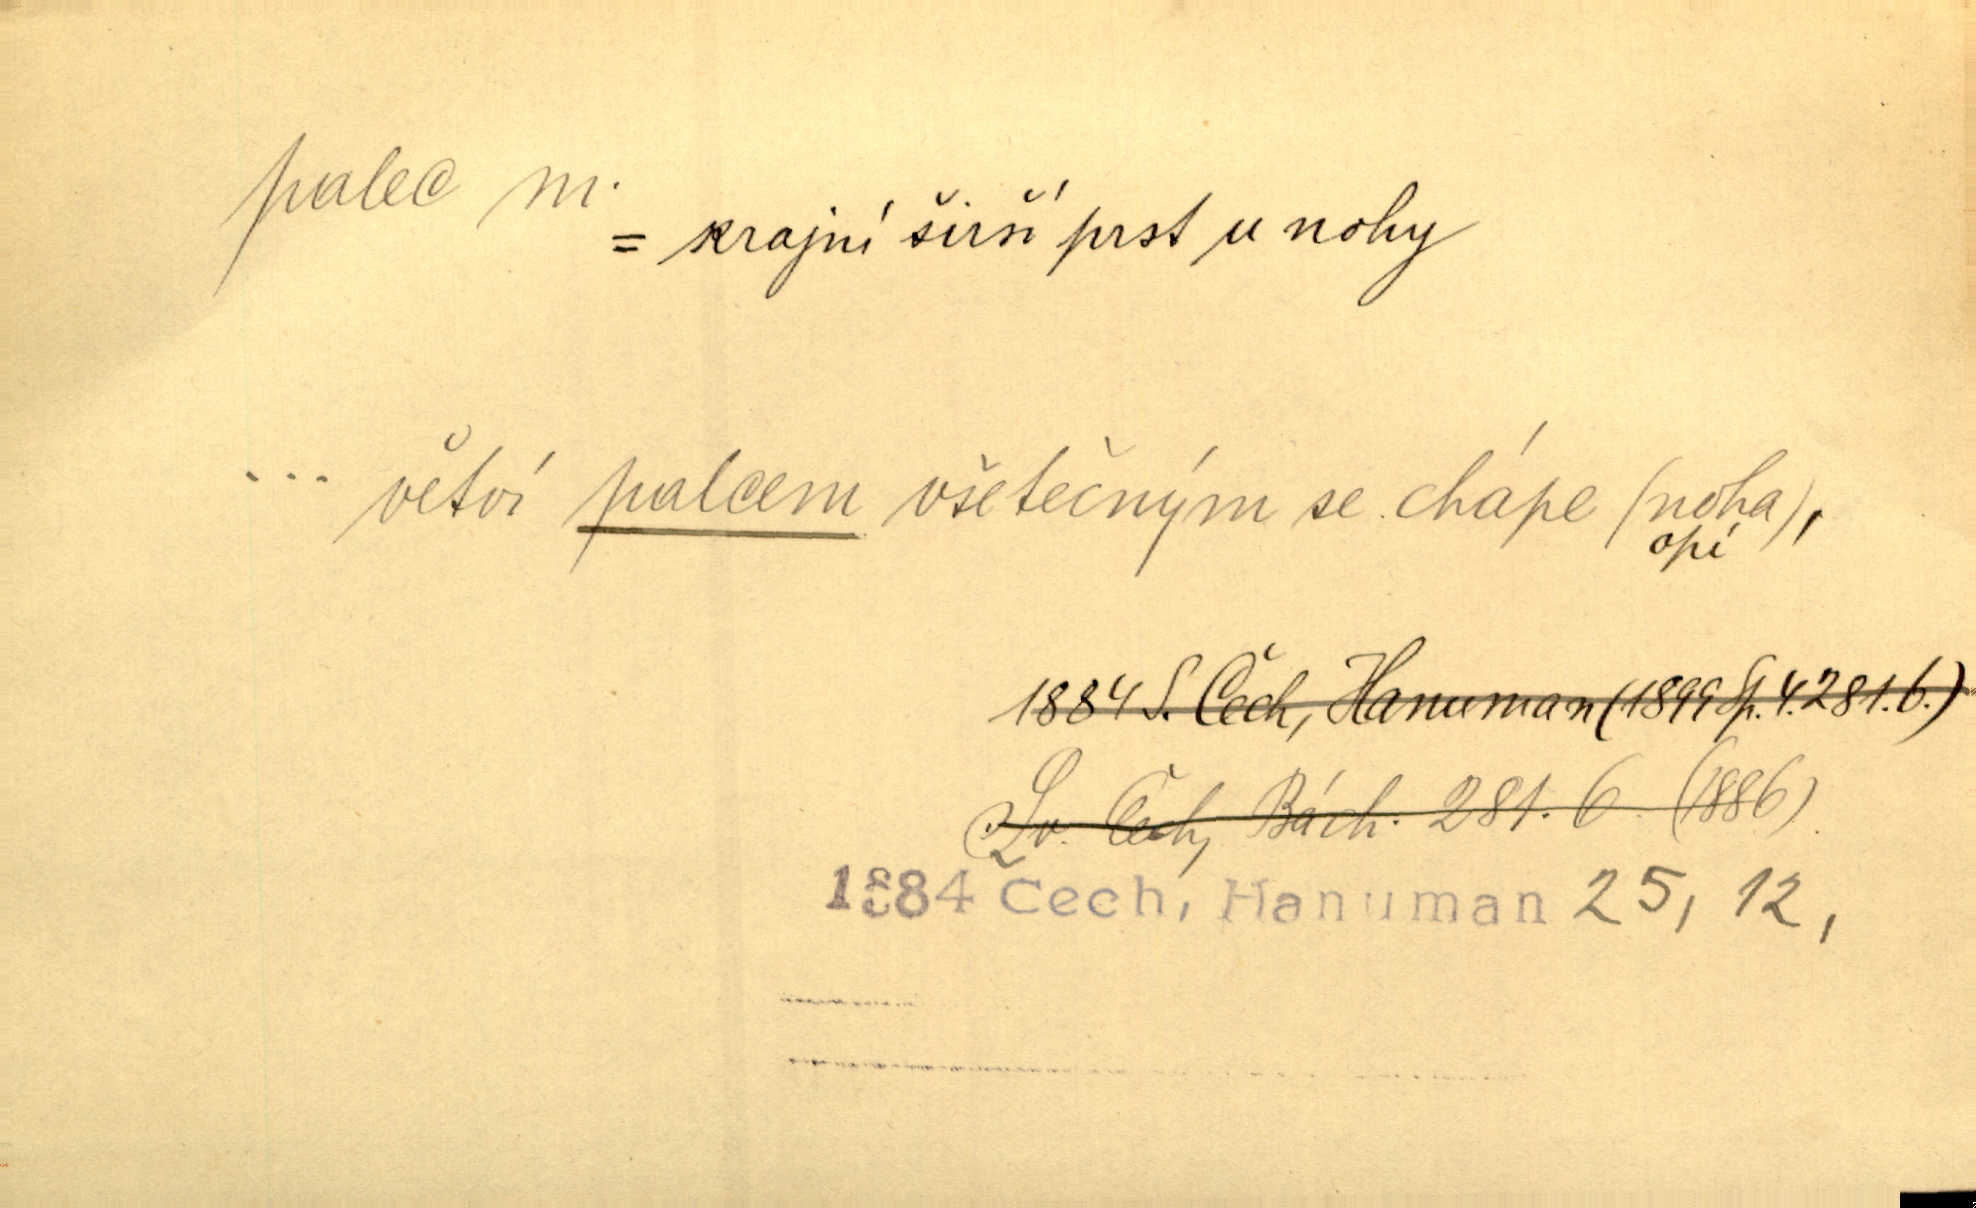 palec m.
= krajní širší prst u nohy
... větví palcem všetečným se chápe (noha),
opí
1884 S. Čech, Hanuman (1899 Sp. 4. 281. 6.)
Sv. Čech, Bách. 281. 6. (1886).
1884 Čech, Hanuman 25, 12,